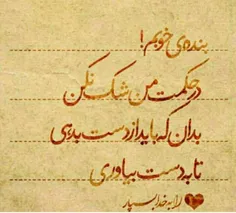 بنده‌ی خوبم!
در حکمت من شک نکن
بدان که باید از دست بدهی
تا به دست بیاوری
را به خدا بسپار